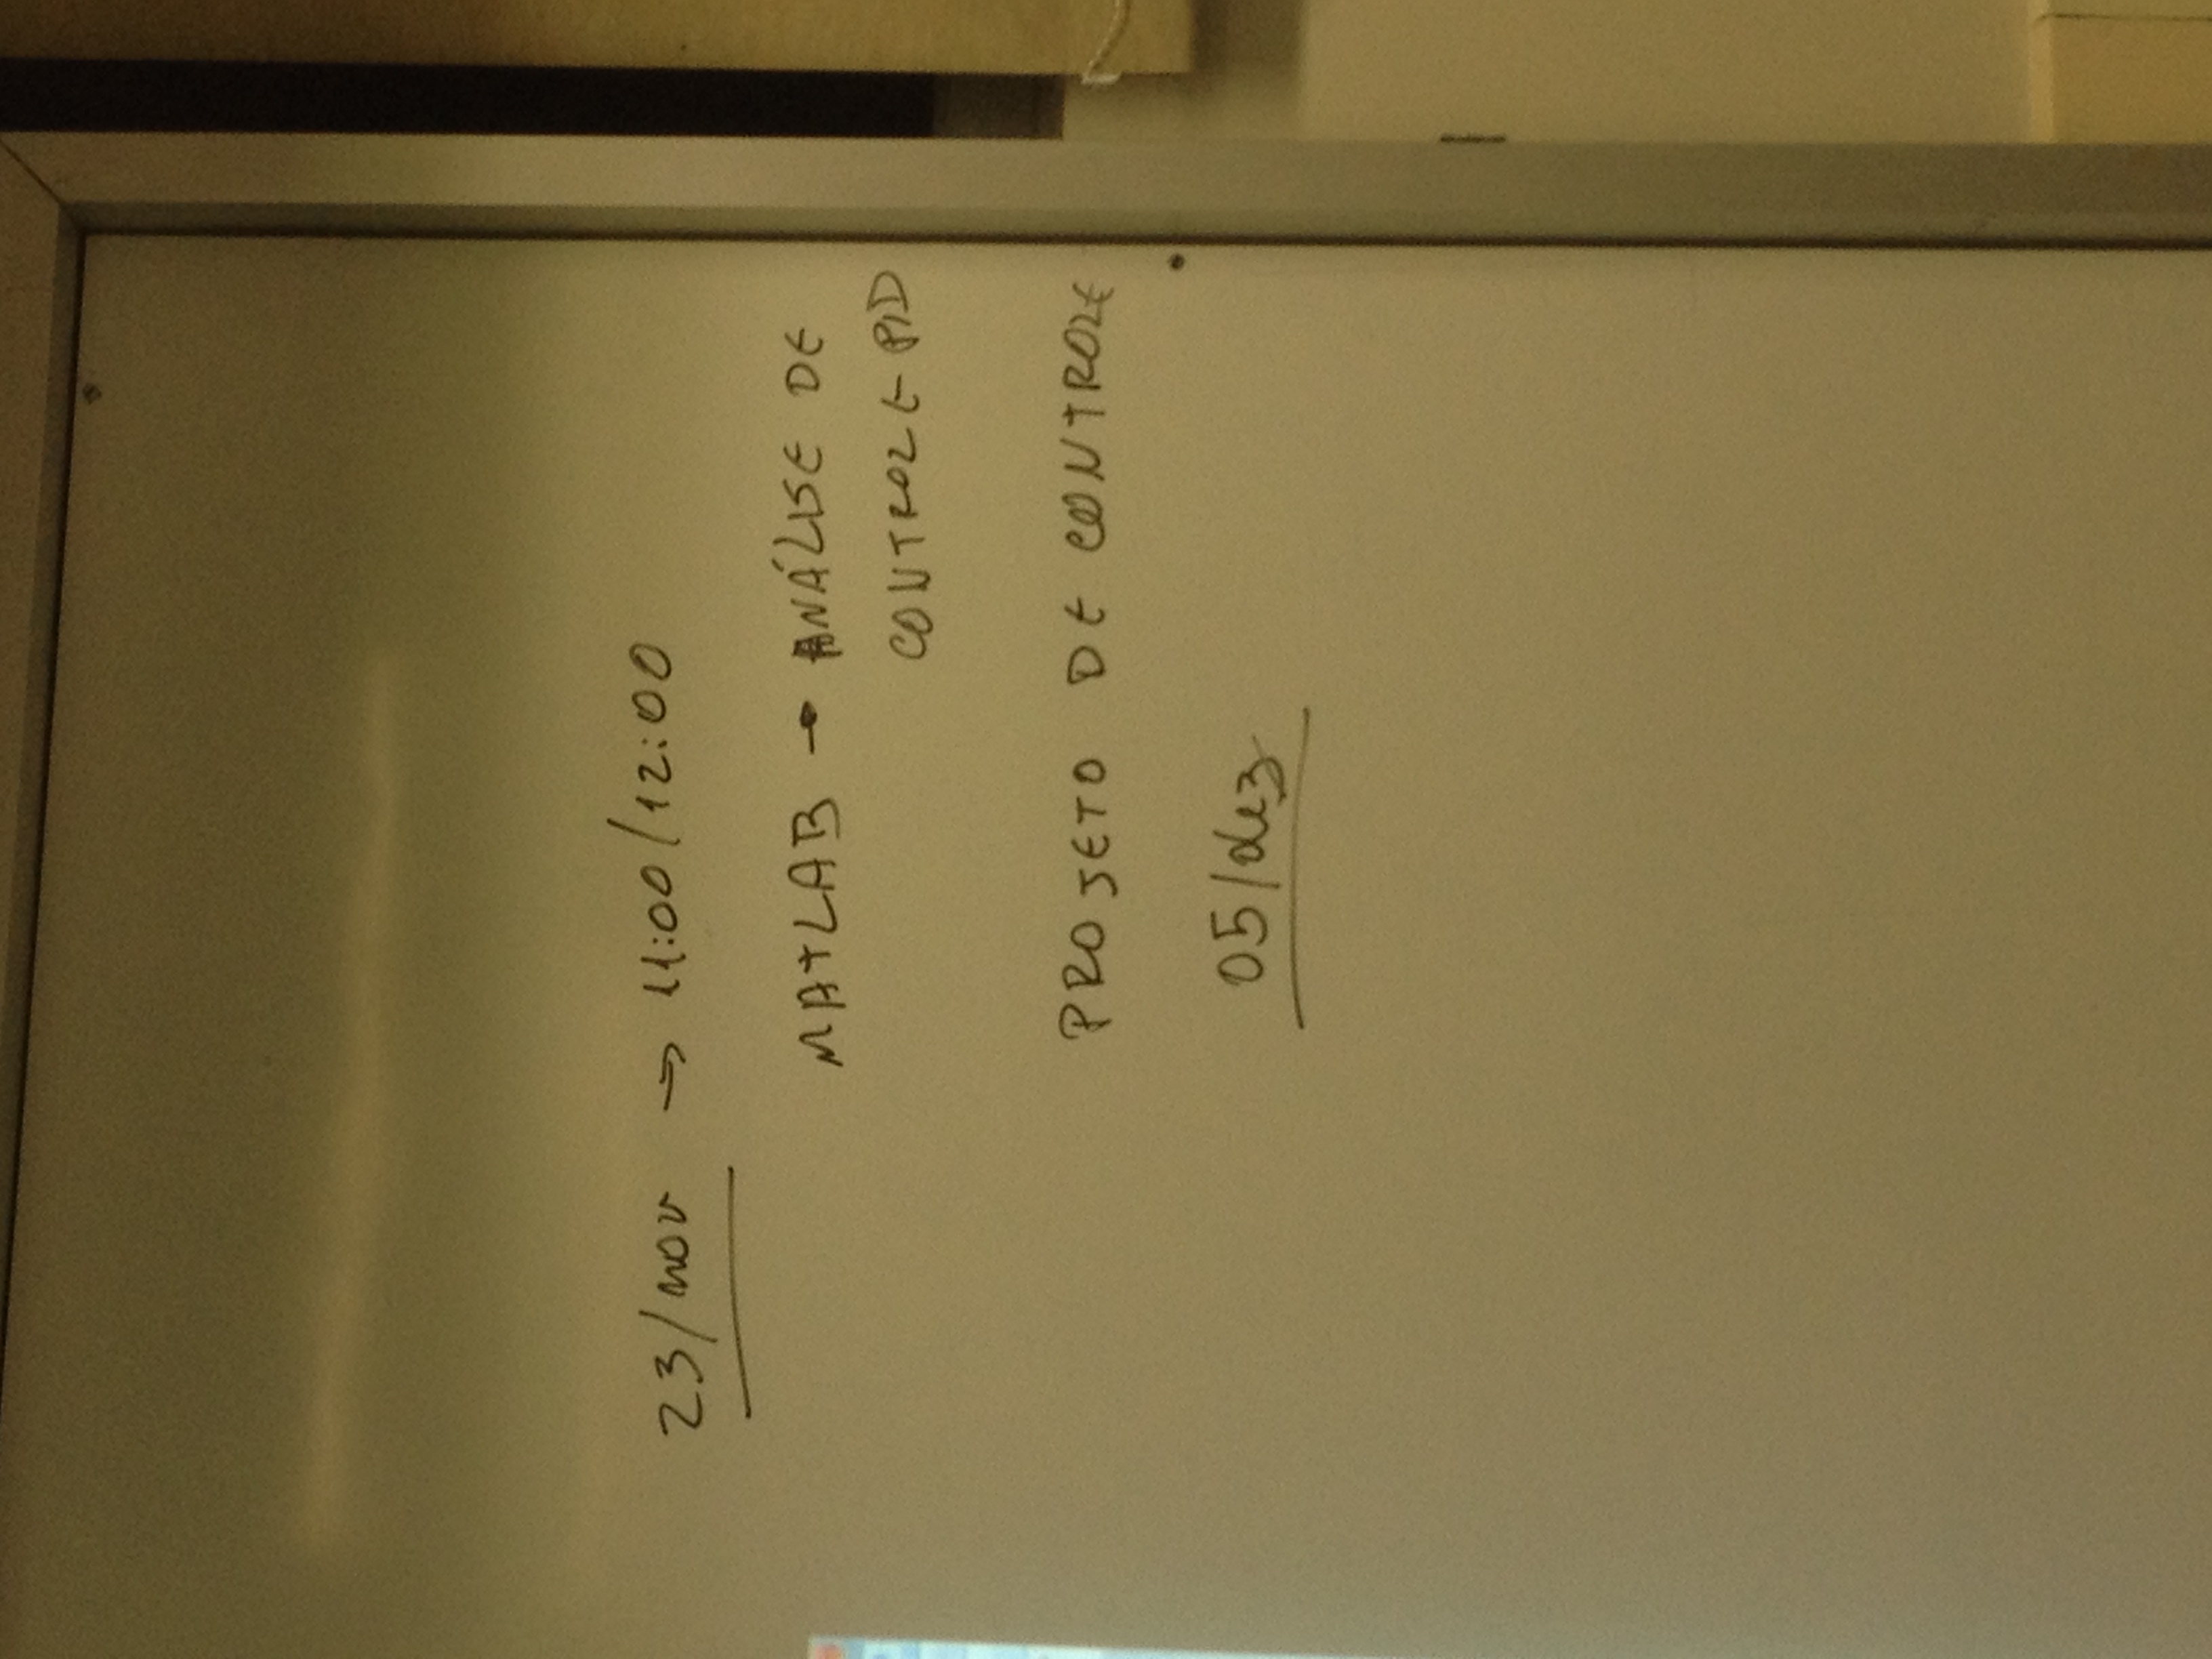 23/nov → 11:00/12:00
MATLAB → ANÁLISE DE
CONTROLE PID
PROJETO DE CONTROLE
05/dez